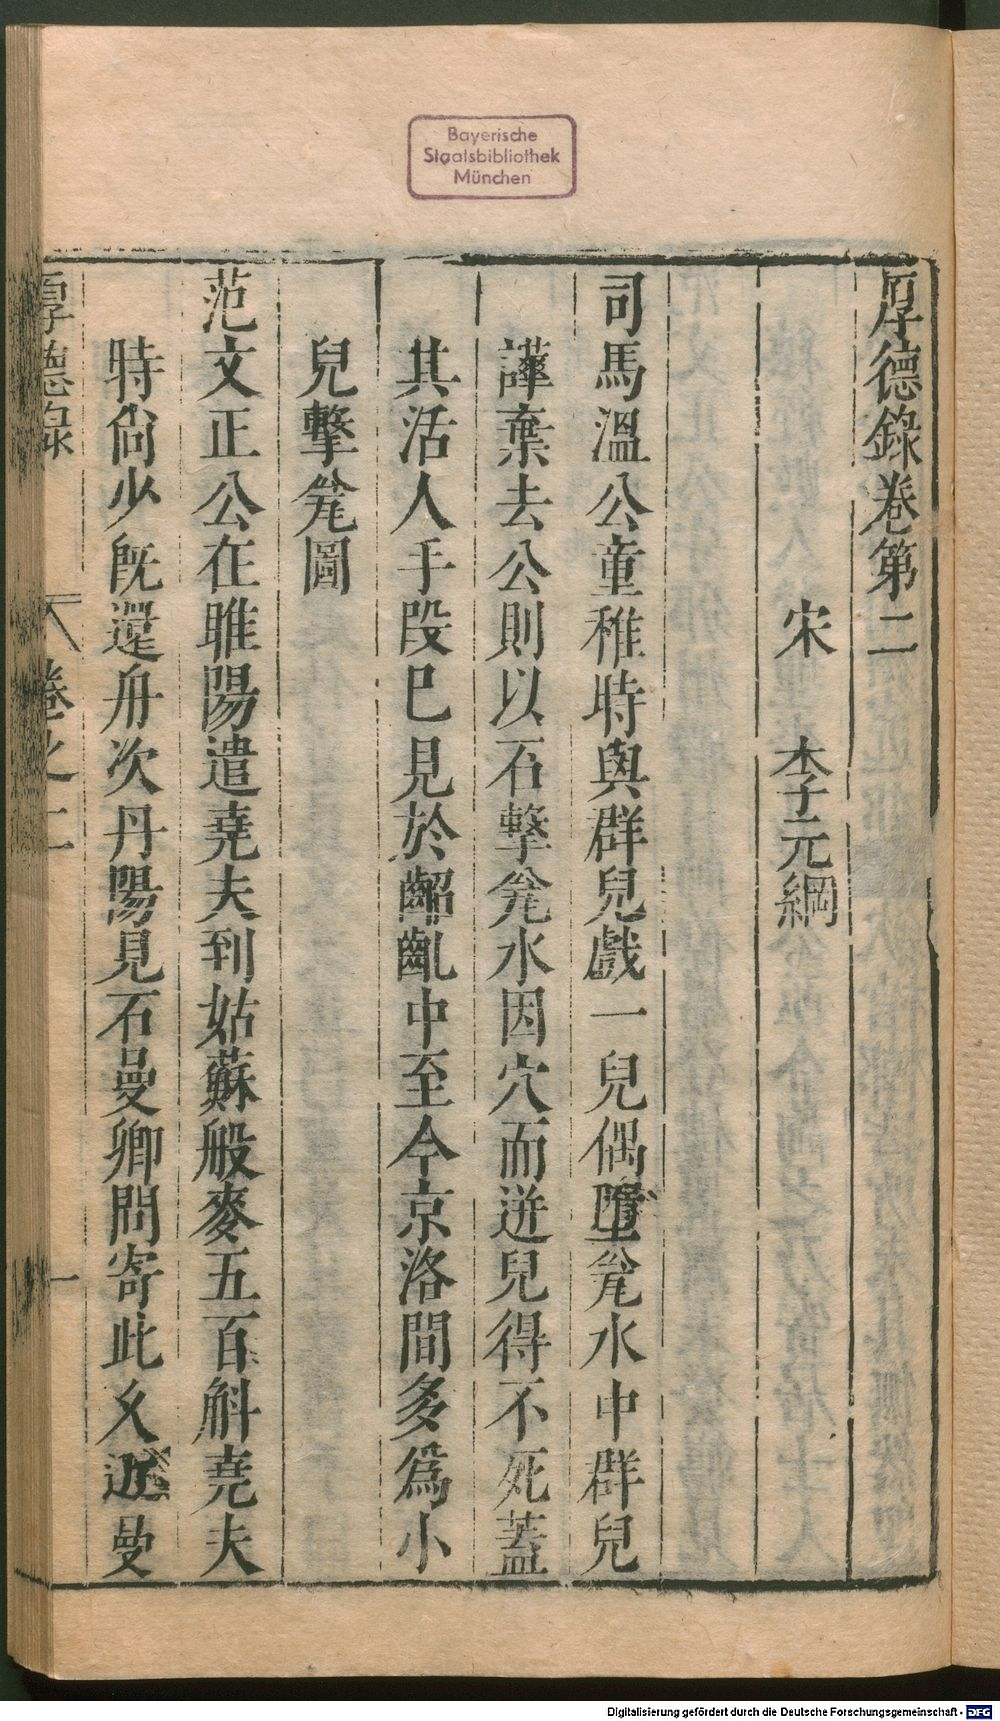 Bayerische
Staatsbibliothek
München
厚德錄卷第二
宋 李元綱
司馬溫公童稚時與群兒戲一兒偶墮瓮水中群兒
譁棄去公則以石擊瓮水因穴而迸兒得不死蓋
其活人手段已見於齠齔中至今京洛間多為小
兒擊瓮圖
范文正公在睢陽遣堯夫到姑蘇般麥五百斛堯夫
時尙少旣還舟次丹陽見石曼卿問寄此久近曼
厚德錄 卷之二 一
Digitalisierung gefördert durch die Deutsche Forschungsgemeinschaft - DFG